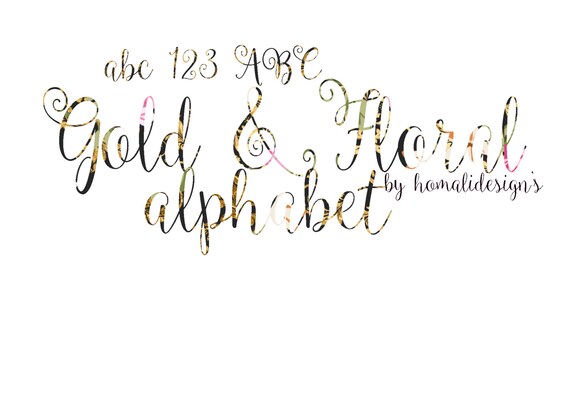 abc 123 ABC
Gold & Floral
by homalidesign's
alphabet